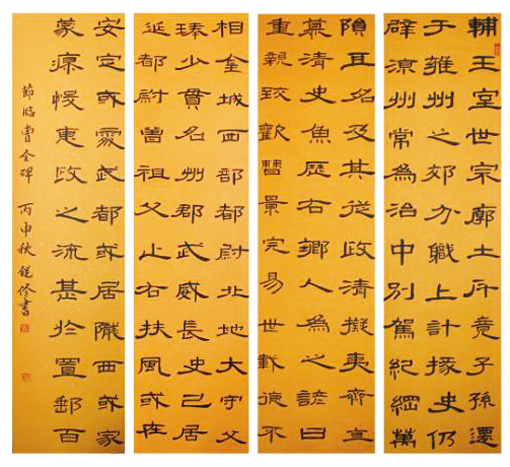 輔王室世宗廓土斥竟子孫遷
于雍州之郊分職上計掾史仍
辟涼州常為治中別駕紀綱萬
隕其名及其從政清擬夷齊直
慕清史魚歷右鄉人為之諺曰
重親致歡曹景完易世載德不
相金城西部都尉北地大守父
琫少貫名州郡武威長史巳居
延都尉曾祖父止右扶風或在
安定或處武都或居隴西或家
蒙瘳悛惠政之流甚於置郵百
節臨曹全碑 丙申秋 銳修書